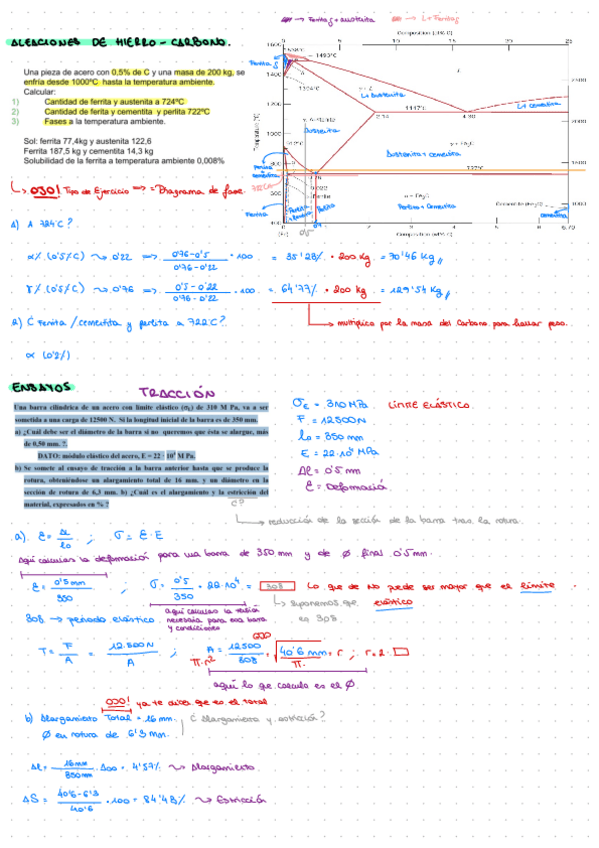 → Ferrita + austenita → L + Ferrita
ALEACIONES DE HIERRO - CARBONO.
Una pieza de acero con 0,5% de C y una masa de 200 kg, se
enfría desde 1000ºC hasta la temperatura ambiente.
Calcular:
1) Cantidad de ferrita y austenita a 724ºC
2) Cantidad de ferita y cementita y perlita 722ºC
3) Fases a la temperatura ambiente.
Sol: ferrita 77,4kg y austenita 122,6
Ferrita 187,5 kg y cementita 14,3 kg
Solubilidad de la ferrita a temperatura ambiente 0,008%
Composition (at% C)
0 5 10 15 20 25
1600
1400
1200
1000
800
600
400
Temperature (°C)
1493°C
L
L + Austenita
1147°C
2.14
4.30
L + Cementita
Austenita
Austenita + cementita
727°C
0.022
Perlita + Cementita
Cementita (Fe₃C)
Composition (wt% C)
0 1 2 3 4 5 6 6.70
(Fe)
→ OJO! Tipo de Ejercicio => = Diagrama de fase.
1) A 724°C?
α% (0'5%C) → 0'22 => 0'76-0'5 / 0'76-0'22 · 100 = 35'28% · 200 Kg = 70'46 Kg //
γ% (0'5%C) → 0'76 => 0'5-0'22 / 0'76-0'22 · 100 = 64'77% · 200 Kg = 129'54 Kg //
2) ¿ Ferrita / cementita y perlita a 722°C?
→ multiplico por la masa del Carbono para hallar peso.
α (0'2%)
ENSAYOS
TRACCIÓN
Una barra cilíndrica de un acero con límite elástico (σE) de 310 M Pa, va a ser
sometida a una carga de 12500 N. Si la longitud inicial de la barra es de 350 mm.
a) ¿Cuál debe ser el diámetro de la barra si no queremos que ésta se alargue, más
de 0,50 mm. ?.
DATO: módulo elástico del acero, E = 22 · 10⁴ M Pa.
b) Se somete al ensayo de tracción a la barra anterior hasta que se produce la
rotura, obteniéndose un alargamiento total de 16 mm. y un diámetro en la
sección de rotura de 6,3 mm. b) ¿Cuál es el alargamiento y la estricción del
material, expresados en % ?
¿?
σE = 310 MPa. LÍMITE ELÁSTICO.
F = 12500N
lo = 350 mm
E = 22·10⁴ MPa
Δl = 0'5 mm
Ɛ = Deformación
→ reducción de la sección de la barra tras la rotura.
a). Ɛ = Δl / lo ; σ = Ɛ·E
Aquí calculas la deformación para una barra de 350 mm y de ø final 0'5 mm.
Ɛ = 0'5 mm / 350 ; σ = 0'5 / 350 · 22·10⁴ = 308 Lo que de no puede ser mayor que el límite elástico
→ suponemos que es 308
308 → periodo elástico
aquí calculas la tensión
necesaria para esa barra
y condiciones
OJO
T = F / A = 12.500N / A ; A = 12500 / 308 = 40'6 mm / π = r ; r·2 =
π·r²
aquí lo que calculo es el ø.
OJO! ya te dice que es el total
b) Alargamiento Total = 16 mm. ¿ Alargamiento y estricción?
ø en rotura de 6'3 mm.
Δl = 16mm / 350mm · 100 = 4'57% → Alargamiento
ΔS = 40'6-6'3 / 40'6 · 100 = 84'48% → Estricción